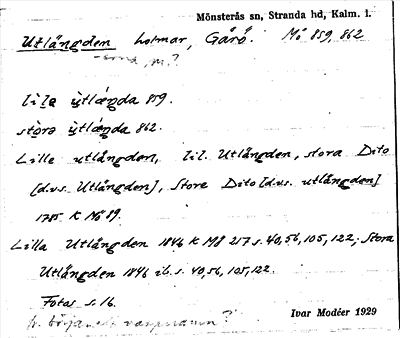 Mönsterås sn, Stranda hd, Kalm. l.
Utlängden holmar, Gårö. Mö 859, 862
, m.?
lìla ùtlæŋda 859.
stòra ùtlæŋda 862.
Lille utlångden, lil. Utlängden, stora Dito
[dvs. Utlängden], Store Dito [dvs. utlången]
1785 K Mö 89.
Lilla Utlångden 1846 K M8 217 s. 40, 56, 105, 122; Stora
Utlångden 1846 ib. s. 40, 56, 105, 122.
Fotas s. 16.
Ivar Modéer 1929